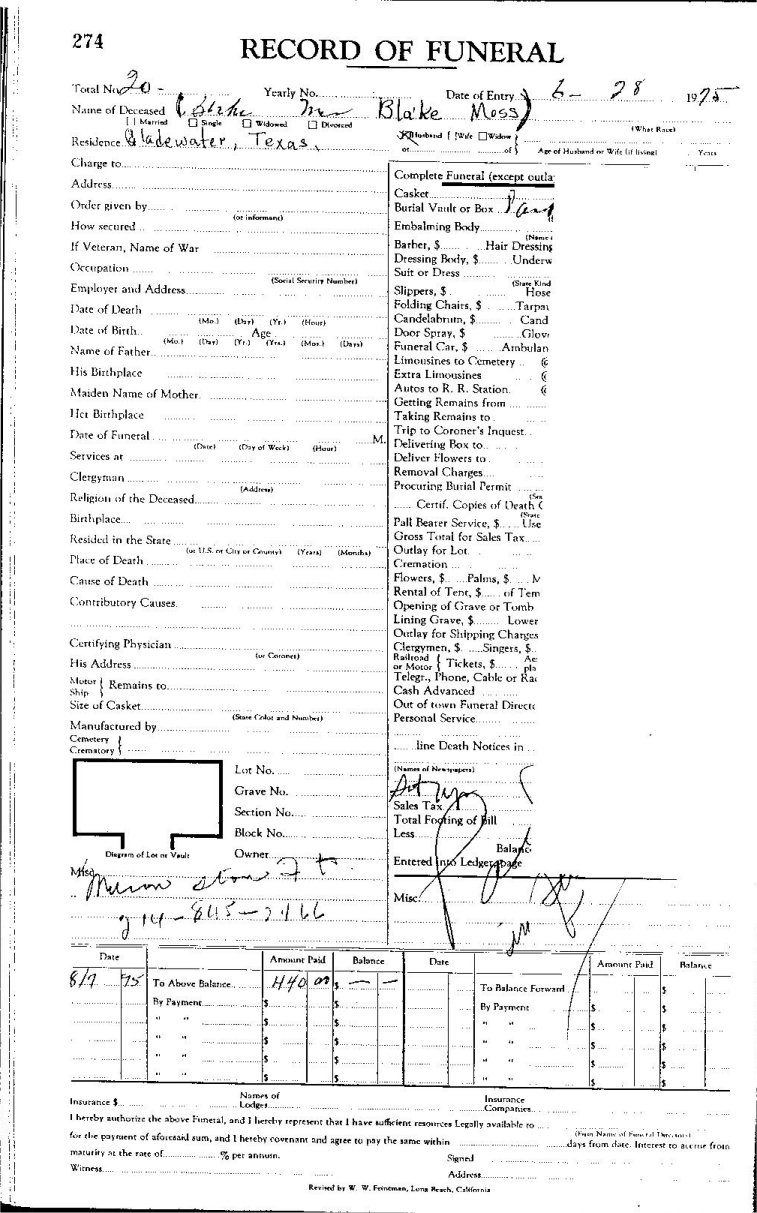 274
RECORD OF FUNERAL
Total No. 20 - Yearly No. Date of Entry 6 - 28 1975
Name of Deceased Blake Moss
[ ] Married Single Widowed Divorced (What Race)
Residence Gladewater, Texas. Husband Wife Widow or of Age of Husband or Wife (if living) Years
Charge to
Address
Order given by
(or informant)
How secured
If Veteran, Name of War
Occupation
(Social Security Number)
Employer and Address
Date of Death
(Mo.) (Day) (Yr.) (Hour)
Date of Birth Age
(Mo.) (Day) (Yr.) (Yrs.) (Mos.) (Days)
Name of Father
His Birthplace
Maiden Name of Mother
Her Birthplace
Date of Funeral M.
(Date) (Day of Week) (Hour)
Services at
Clergyman
(Address)
Religion of the Deceased
Birthplace
Resided in the State
(or U.S. or City or County) (Years) (Months)
Place of Death
Cause of Death
Contributory Causes.
Certifying Physician
(or Coroner)
His Address
Motor Ship } Remains to
Size of Casket
(State Color and Number)
Manufactured by
Cemetery
Crematory
Lot No.
Grave No.
Section No.
Block No.
Owner
Diagram of Lot or Vault
Complete Funeral (except outla
Casket
Burial Vault or Box
Embalming Body
(Name
Barber, $ Hair Dressing
Dressing Body, $ Underw
Suit or Dress
(State Kind
Slippers, $ Hose
Folding Chairs, $ Tarpau
Candelabrum, $ Cand
Door Spray, $ Glov
Funeral Car, $ Ambulan
Limousines to Cemetery
Extra Limousines
Autos to R. R. Station.
Getting Remains from
Taking Remains to
Trip to Coroner's Inquest
Delivering Box to
Deliver Flowers to
Removal Charges
Procuring Burial Permit
Certif. Copies of Death
(State
Pall Bearer Service, $ Use
Gross Total for Sales Tax
Outlay for Lot
Cremation
Flowers, $ Palms, $ M
Rental of Tent, $ of Tem
Opening of Grave or Tomb
Lining Grave, $ Lower
Outlay for Shipping Charges
Clergymen, $ Singers, $
Railroad or Motor { Tickets, $ Aer pla
Telegr., Phone, Cable or Rad
Cash Advanced
Out of town Funeral Directo
Personal Service
line Death Notices in
(Names of Newspapers)
Sales Tax
Total Footing of Bill
Less
Balance
Entered into Ledger, page
Misc.
Misc.
214-845-2166
Date Amount Paid Balance Date Amount Paid Balance
8/7 75 To Above Balance 440 00 $ — — To Balance Forward $
By Payment $ $ By Payment $ $
" " $ $ " " $ $
" " $ $ " " $ $
" " $ $ " " $ $
" " $ $ " " $ $
Insurance $ Names of Lodges Insurance Companies
I hereby authorize the above Funeral, and I hereby represent that I have sufficient resources Legally available to
(Firm Name of Funeral Directors)
for the payment of aforesaid sum, and I hereby covenant and agree to pay the same within days from date. Interest to accrue from
maturity at the rate of % per annum. Signed
Witness Address
Revised by W. W. Feineman, Long Beach, California